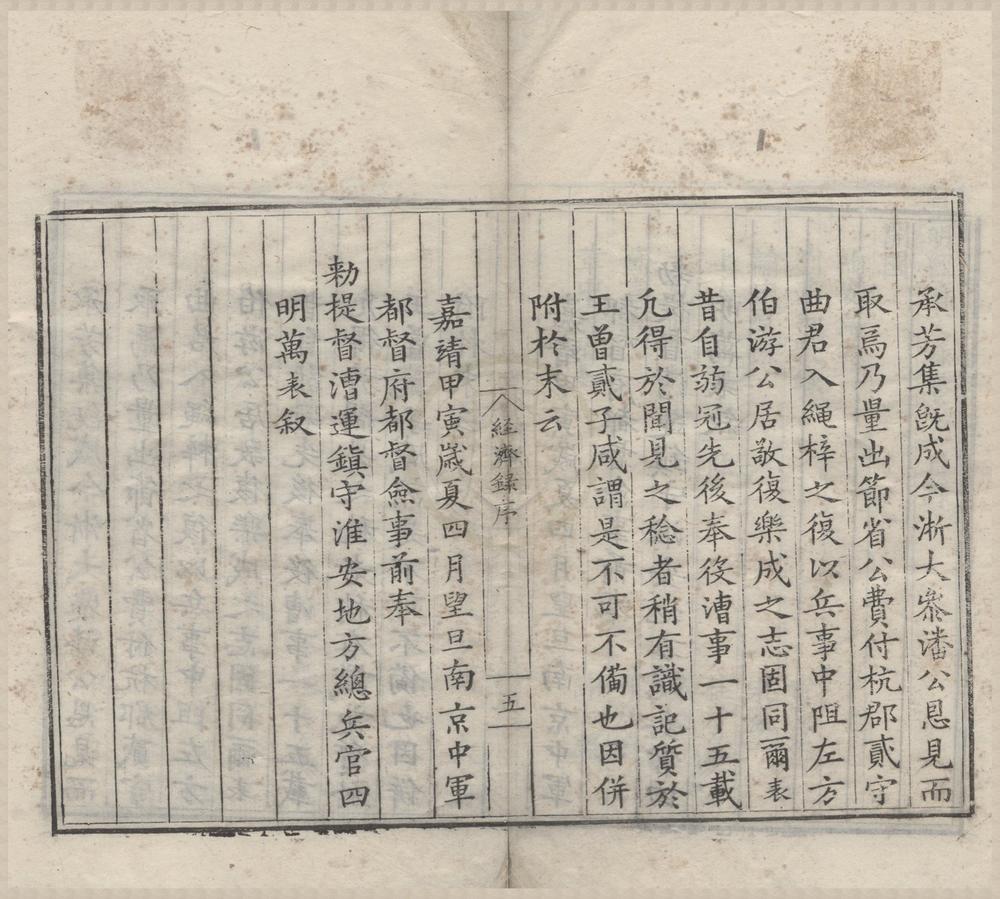 承芳集旣成今浙大叅潘公恩見而
取焉乃量出節省公費付杭郡貳守
曲君入繩梓之復以兵事中阻左方
伯游公居敬復樂成之志固同爾表
昔自弱冠先後奉役漕事一十五載
凢得於聞見之稔者稍有識記質於
王曾貳子咸謂是不可不備也因併
附於末云
経濟錄序
五
嘉靖甲寅歲夏四月望旦南京中軍
都督府都督僉事前奉
勅提督漕運鎭守淮安地方總兵官四
明萬表叙